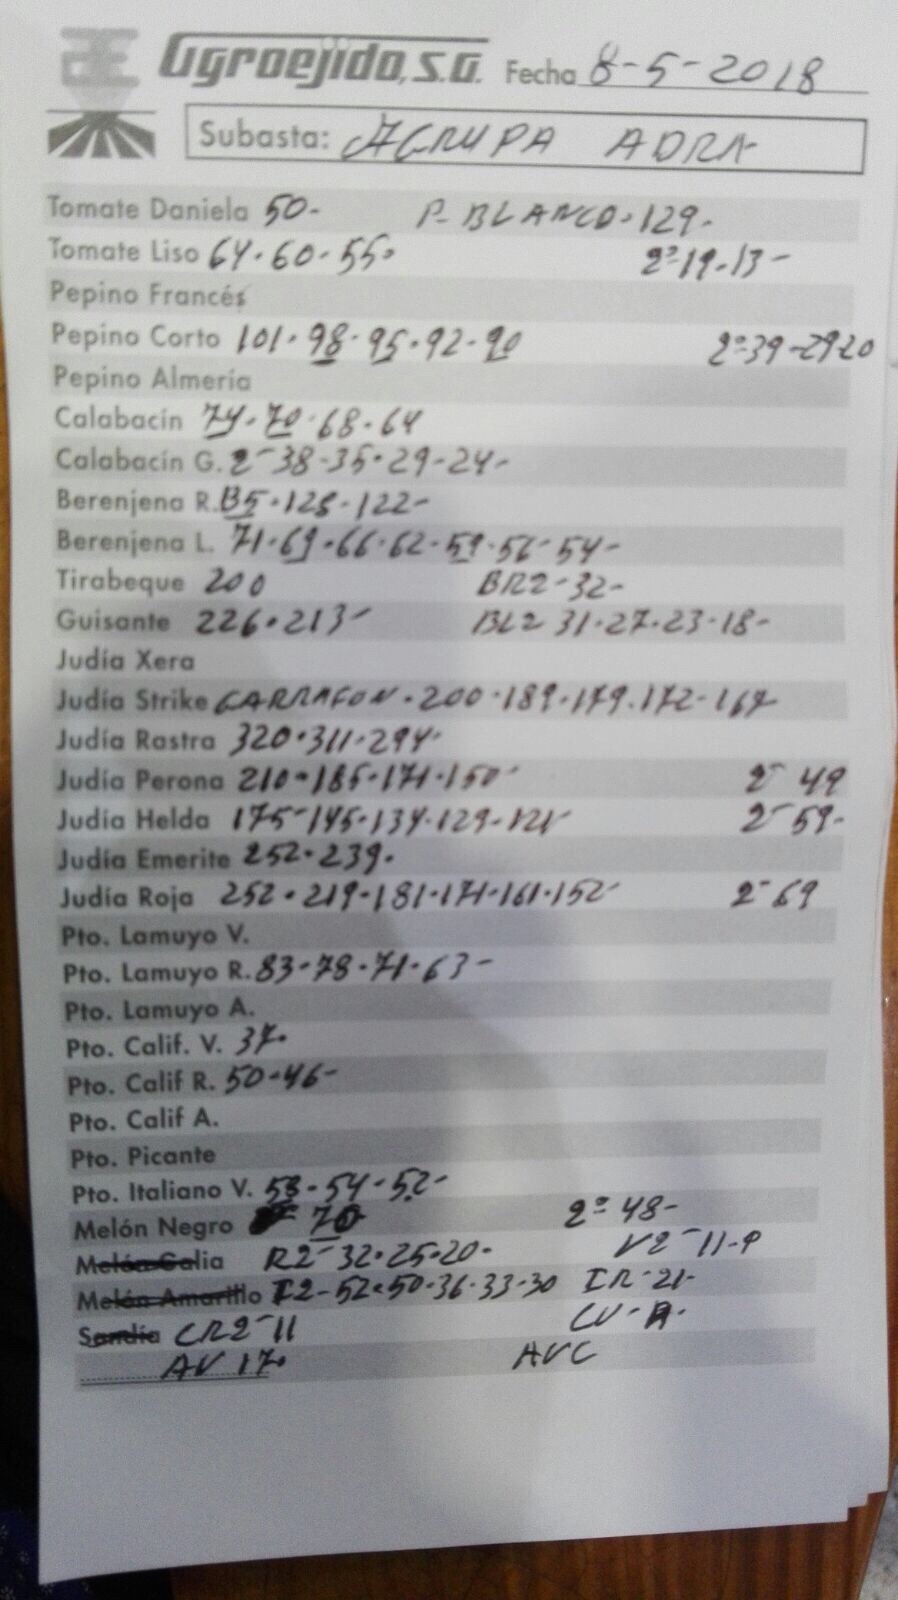 Agroejido, S.A. Fecha 8-5-2018
Subasta: AGRUPA ADRA
Tomate Daniela 50- P-BLANCO-129-
Tomate Liso 64-60-55- 2ª19-13-
Pepino Francés
Pepino Corto 101-98-95-92-90 2ª39-29-20
Pepino Almería
Calabacín 74-70-68-64
Calabacín G. 2-38-35-29-24-
Berenjena R. 122-
Berenjena L. 71-69-66-62-59-56-54-
Tirabeque 200 BR2-32-
Guisante 226-213- BL2 31-27-23-18-
Judía Xera
Judía Strike GARRAFON-200-189-179-172-167
Judía Rastra 320-311-294-
Judía Perona 210-185-171-150- 2-49
Judía Helda 175-145-134-129-121 2-59-
Judía Emerite 252-239-
Judía Roja 252-219-181-171-161-152- 2-69
Pto. Lamuyo V.
Pto. Lamuyo R. 83-78-71-63-
Pto. Lamuyo A.
Pto. Calif. V. 37-
Pto. Calif R. 50-46-
Pto. Calif A.
Pto. Picante
Pto. Italiano V. 58-54-52-
Melón Negro 70 2ª 48-
Melón Galia R2-32-25-20- V2-11-9
Melón Amarillo I2-52-50-36-33-30 IR-21-
Sandía CR2-11 CV-
AV 17- AVC